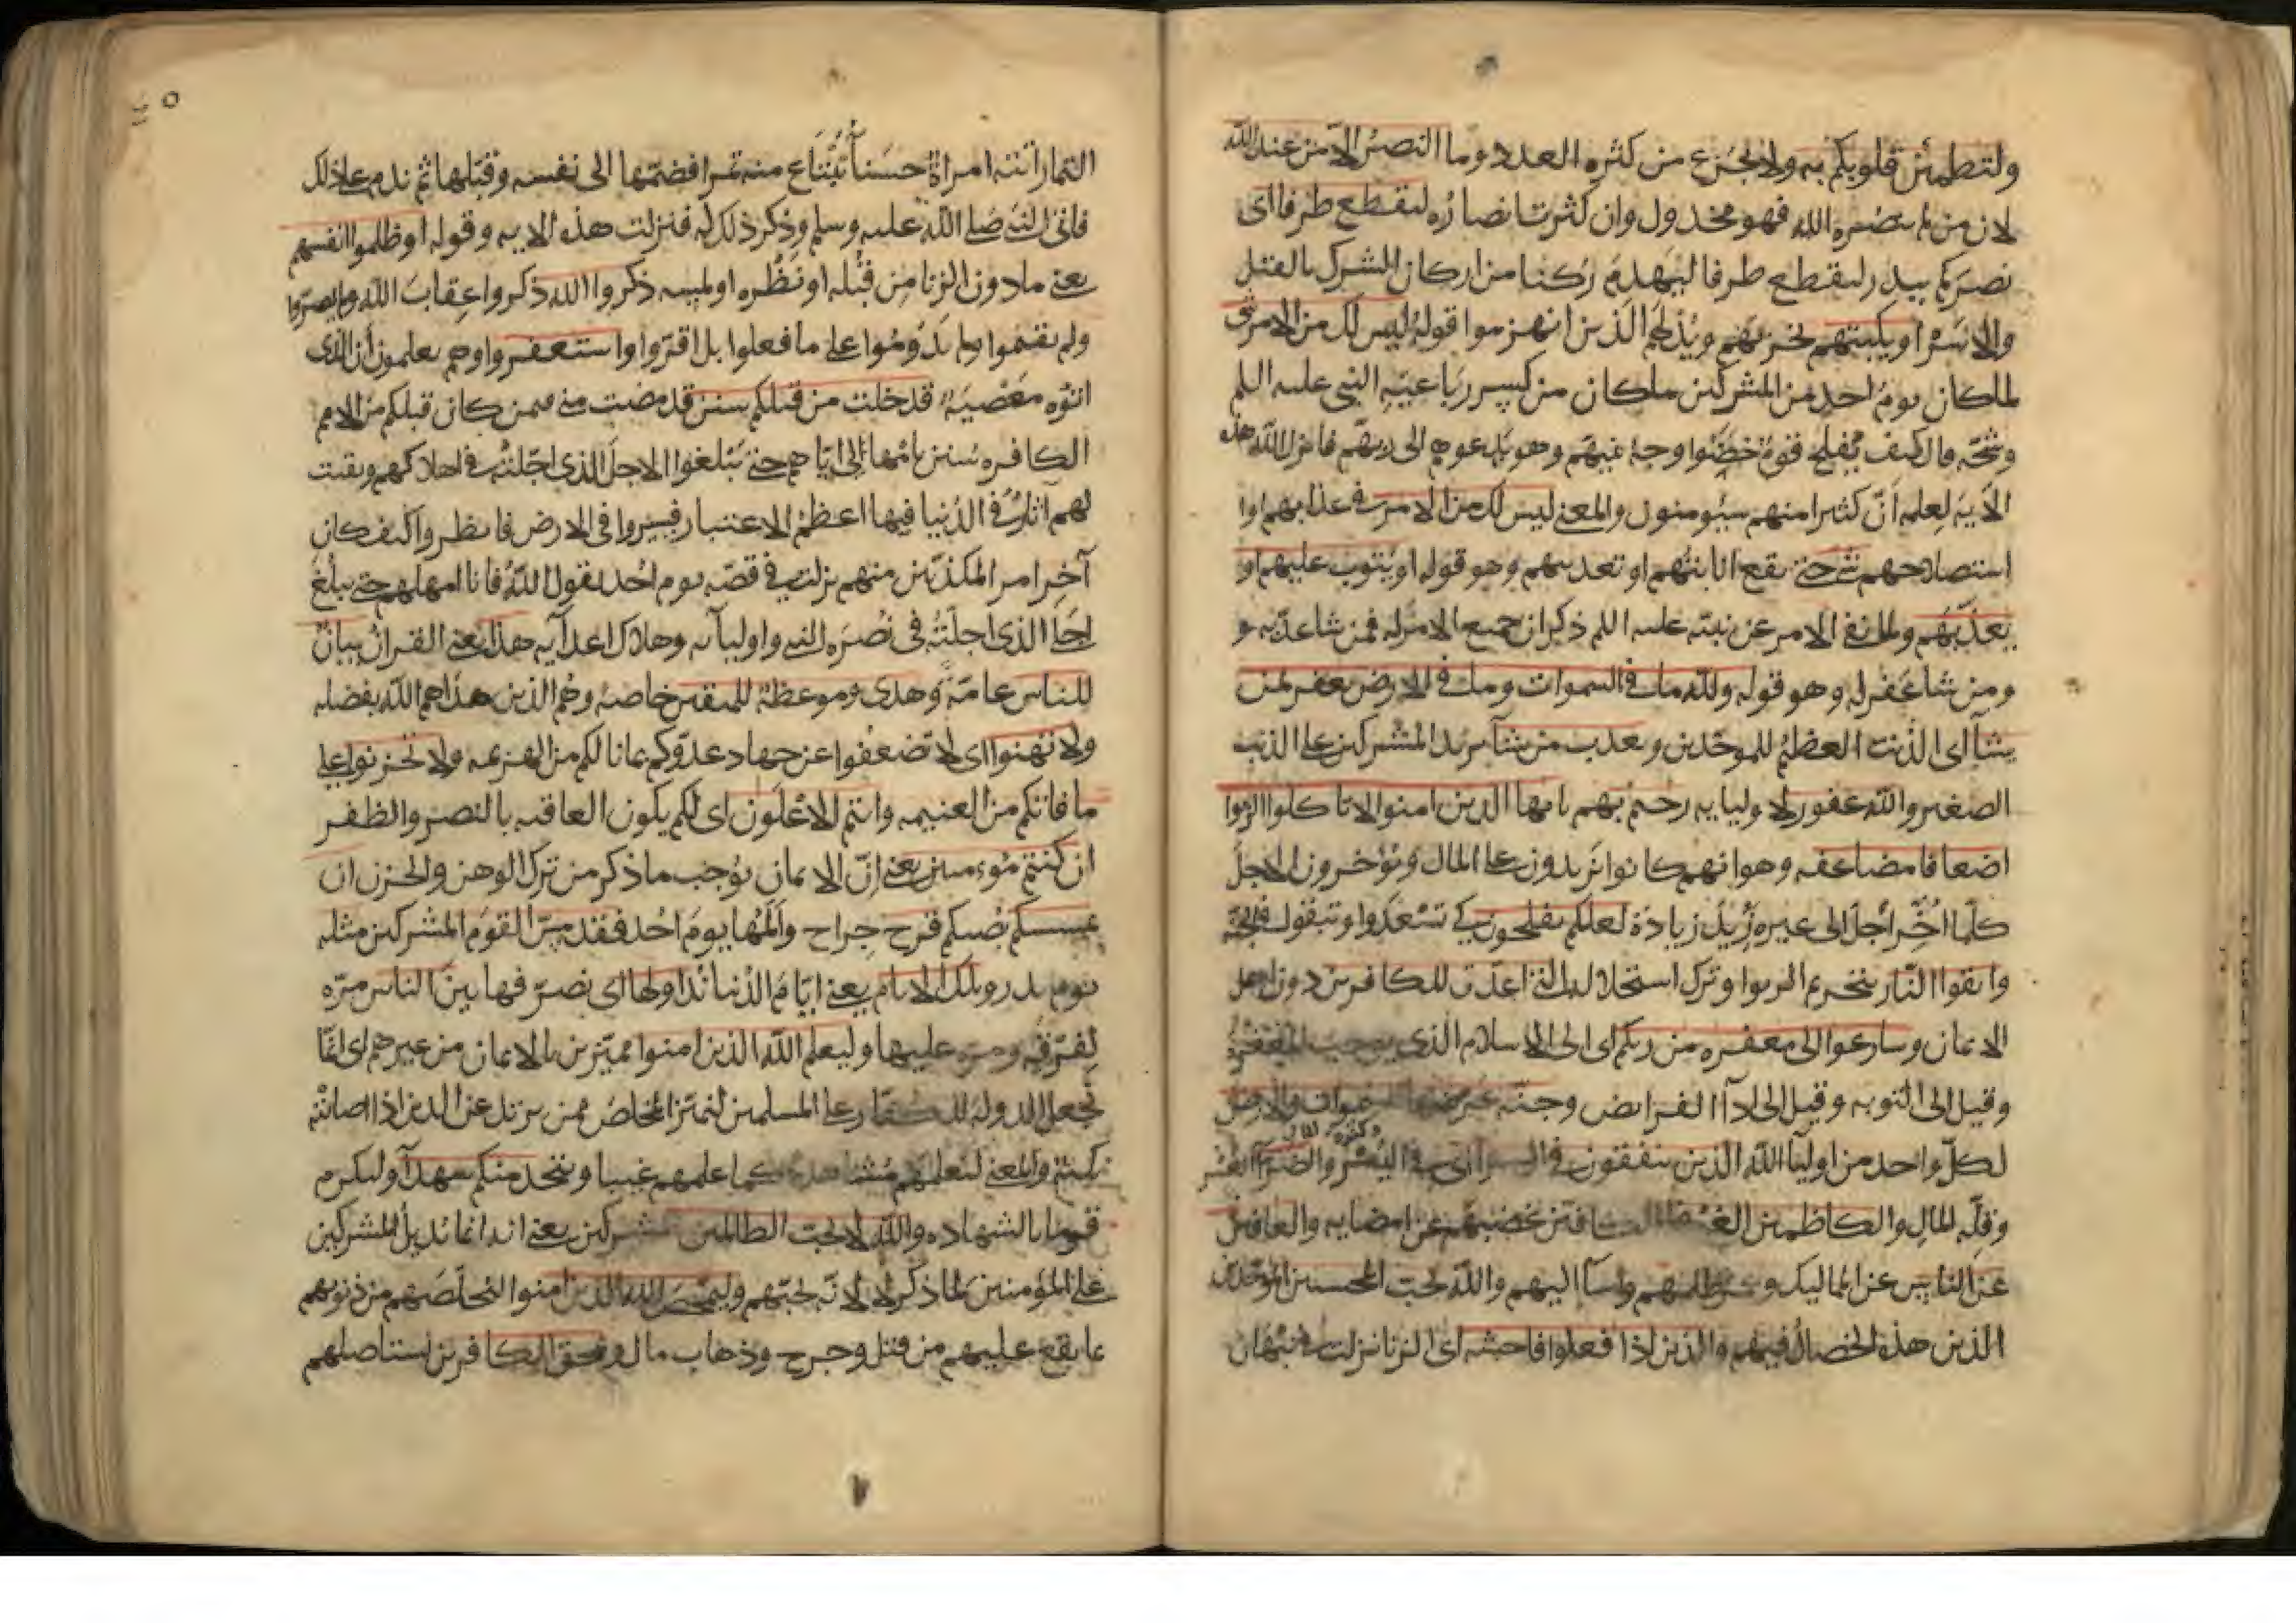 ولتطمئن قلوبكم به ولا تجزع من كثره العدد وما النصر الا من عند الله
لان من لم ينصره الله فهو مخذول وان كثرت انصاره ليقطع طرفا اى
نصركم ببدر ليقطع طرفا ليهدم ركنا من اركان الشرك بالقتل
والاسر او يكبتهم يخزيهم ويذلهم الذين انهزموا قوله ليس لك من الامر شى
لما كان يوم احد من المشركين ما كان من كسر رباعية النبى عليه السلم
وشجه قال كيف يفلح قوم خضبوا وجه نبيهم وهو يدعوهم الى ربهم فانزل الله هذه
الآية لعلمه أن كثيرا منهم سيؤمنون والمعنى ليس لك من الامر فى عذابهم او
استصلاحهم شى حتى يقع انابتهم او تعذيبهم وهو قوله او يتوب عليهم او
يعذبهم ولما نفى الامر عن نبيه عليه السلم ذكر ان جميع الامر له فمن شا عذبه و
ومن شا غفر له وهو قوله ولله ما فى السموات وما فى الارض يغفر لمن
يشآ اى الذنب العظيم للموحدين ويعذب من يشآ يريد المشركين على الذنب
الصغير والله غفور لاوليايه رحيم بهم يايها الذين امنوا لا تاكلوا الربوا
اضعافا مضاعفه وهو انهم كانوا يزيدون على المال ويؤخرون الاجل
كلما اخر اجل الى غيره زيد زيادة لعلكم تفلحون كى تسعدوا وتبقوا فى الجنة
واتقوا النار بتحريم الربوا وترك استحلاله التى اعدت للكافرين دون اهل
الايمان وسارعوا الى مغفره من ربكم اى الى الاسلام الذى يوجب المغفرة
وقيل الى التوبه وقيل الى ادآ الفرايض وجنه عرضها السموات والارض
لكل واحد من اوليآ الله الذين ينفقون فى السرآ فى اليسر وكثره المال والضرآ العسر
وقله المال والكاظمين الغيظ الكافين غضبهم عن امضايه والعافين
عن الناس عن المماليك وعمن ظلمهم واسآ اليهم والله يحب المحسنين الموحدين
الذين هذه الخصال فيهم والذين اذا فعلوا فاحشه اى الزنا نزلت فى نبهان
التمار اتته امراة حسنآ تبتاع منه تمرا فضمها الى نفسه وقبلها ثم ندم على ذلك
فاتى النبى صلى الله عليه وسلم وذكر ذلك له فنزلت هذه الايه وقوله او ظلموا انفسهم
يعنى ما دون الزنا من قبله او نظره او لمسه ذكروا الله ذكروا عقاب الله ولم يصروا
ولم يقيموا ولم يدوموا على ما فعلوا بل اقروا واستغفروا وهم يعلمون أن الذى
اتوه معصية قد خلت من قبلكم سنن قد مضت منى فيمن كان قبلكم من الامم
الكافره سنن بامهالى اياهم حتى يبلغوا الاجل الذى اجلته فى اهلاكهم وبقيت
لهم آثار فى الدنيا فيها اعظم الاعتبار فسيروا فى الارض فانظروا كيف كان
آخر امر المكذبين منهم نزلت فى قصه يوم احد يقول الله فانا امهلهم حتى يبلغ
اجل الذى اجلته فى نصره النبى واوليآيه وهلاك اعدآيه هذا يعنى القران بيان
للناس عامة وهدى وموعظة للمتقين خاصه وهم الذين هداهم الله بفضله
ولا تهنوا اى لا تضعفوا عن جهاد عدوكم بما نالكم من الهزيمه ولا تحزنوا على
ما فاتكم من الغنيمه وانتم الاعلون اى لكم يكون العاقبه بالنصر والظفر
ان كنتم مؤمنين يعنى إن الايمان يوجب ما ذكر من ترك الوهن والحزن ان
يمسسكم يصبكم قرح جراح والمها يوم احد فقد مس القوم المشركين مثله
يوم بدر وتلك الايام يعنى ايام الدنيا نداولها اى نصرفها بين الناس مره
لفرقه ومره عليها وليعلم الله الذين امنوا مميزين بالايمان من غيرهم اى انما
نجعل الدوله للكفار على المسلمين لتميز المخلص ممن يرتد عن الدين اذا اصابته
نكبة والمعنى ليعلمهم مشاهدة كما علمهم غيبا ويتخذ منكم شهدآ وليكرم
قوما بالشهاده والله لا يحب الظالمين المشركين يعنى انه انما يديل المشركين
على المؤمنين لما ذكر لا لانه يحبهم وليمحص الله الذين امنوا ليخلصهم من ذنوبهم
بما يقع عليهم من قتل وجرح وذهاب مال ويمحق الكافرين يستاصلهم